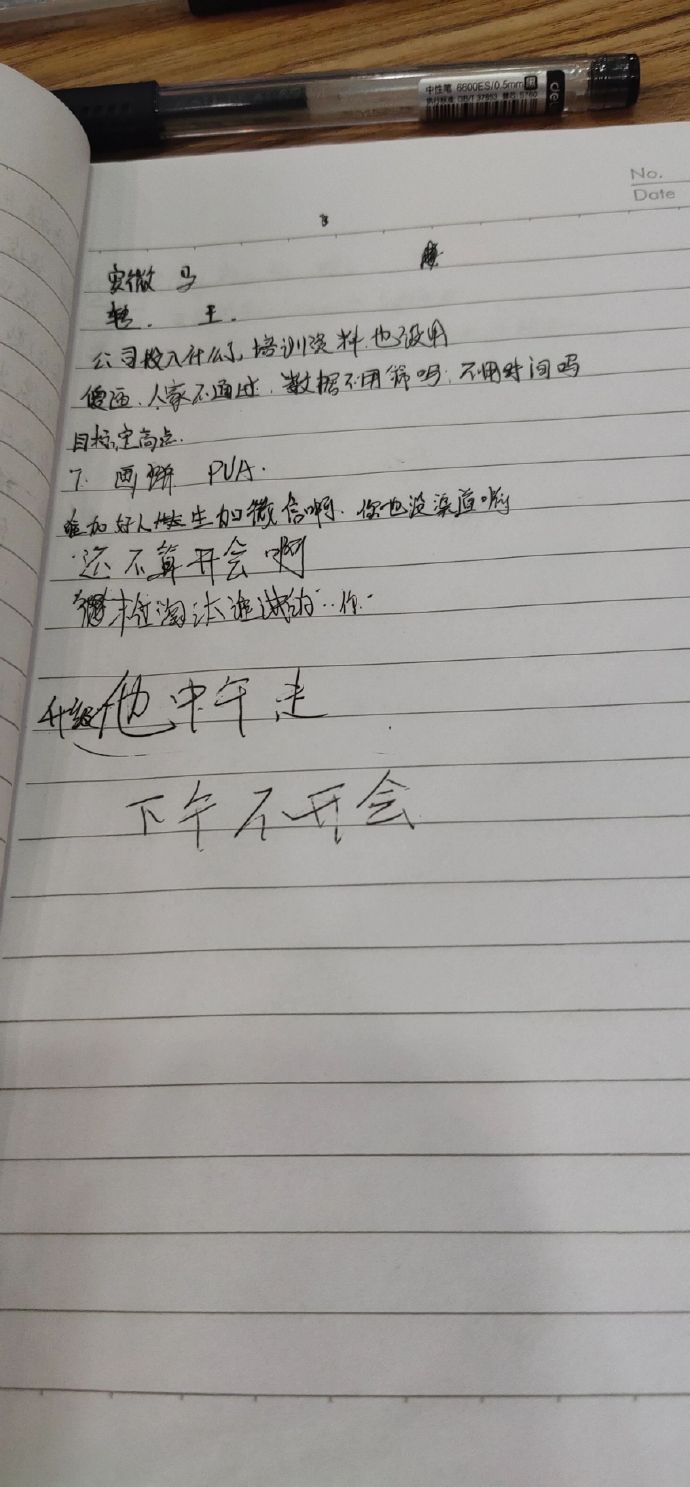 中性笔 6600ES/0.5mm
deli
No.
Date
安徽 马
转. 王.
公司投入什么了，培训资料也没用
傻逼.人家不通过.数据不用筛吗.不用时间吗
目标定高点.
7. 画饼 PUA.
加好人 生加微信啊.你也没渠道啊
还不算开会啊
末位淘汰 谁 ..你.
升级 他中午走
下午不开会